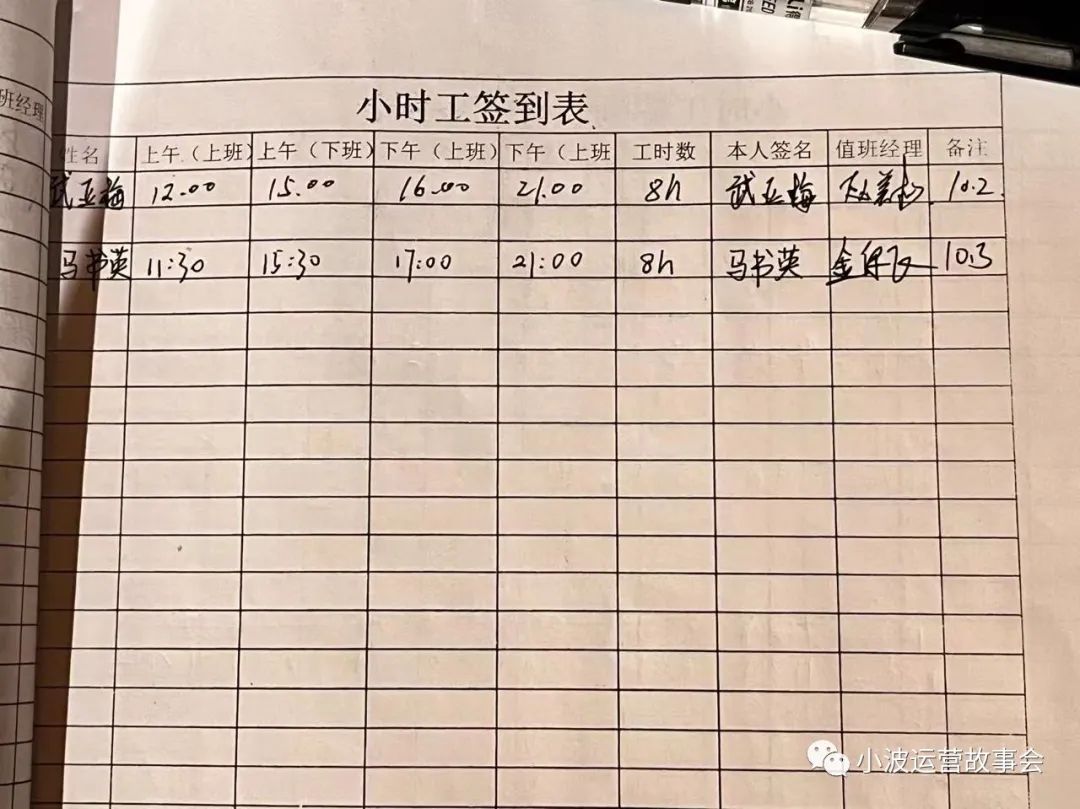 班经理
小时工签到表
姓名 上午（上班） 上午（下班） 下午（上班） 下午（上班 工时数 本人签名 值班经理 备注
武亚梅 12.00 15.00 16.00 21.00 8h 武亚梅 10.2
马书英 11:30 15:30 17:00 21:00 8h 马书英 10.3
小波运营故事会